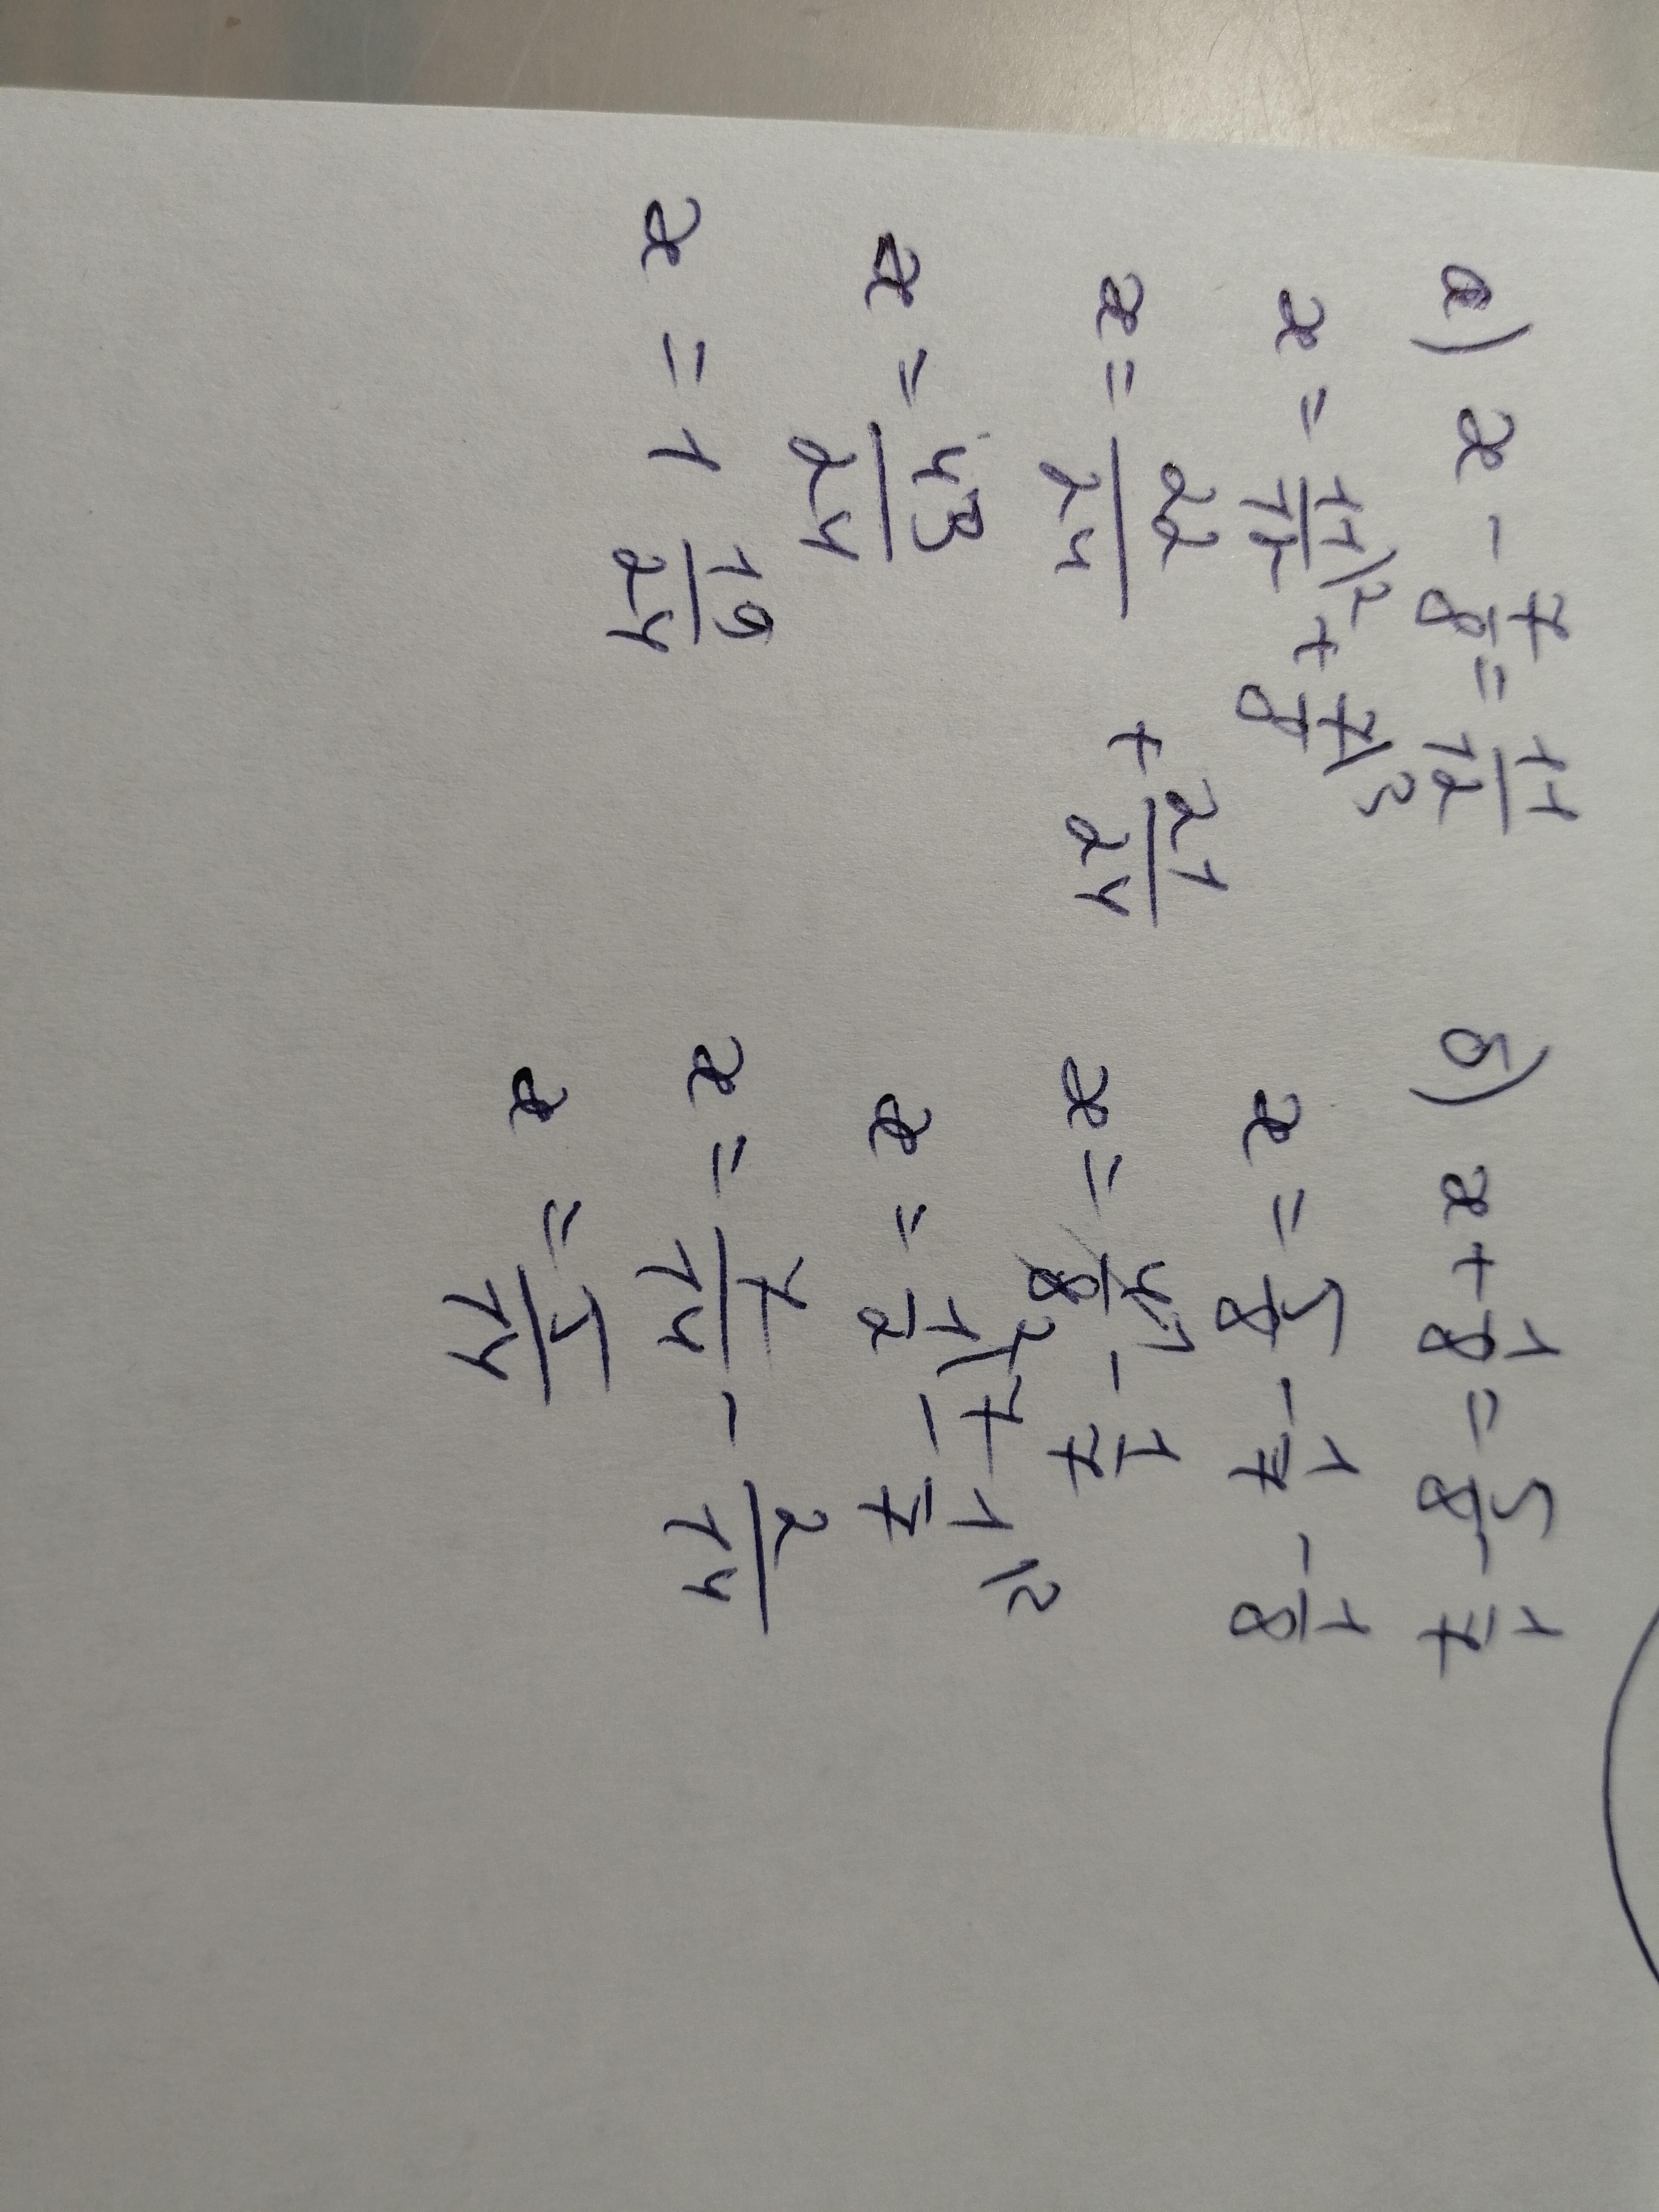 а) x - 7/8 = 11/12
x = 11/12 \2 + 7/8 \3
x = 22/24 + 21/24
x = 43/24
x = 1 19/24
б) x + 1/8 = 5/8 - 1/7
x = 5/8 - 1/7 - 1/8
x = 4 1/8 2 - 1/7
x = 1/2 \7 - 1/7 \2
x = 7/14 - 2/14
x = 5/14